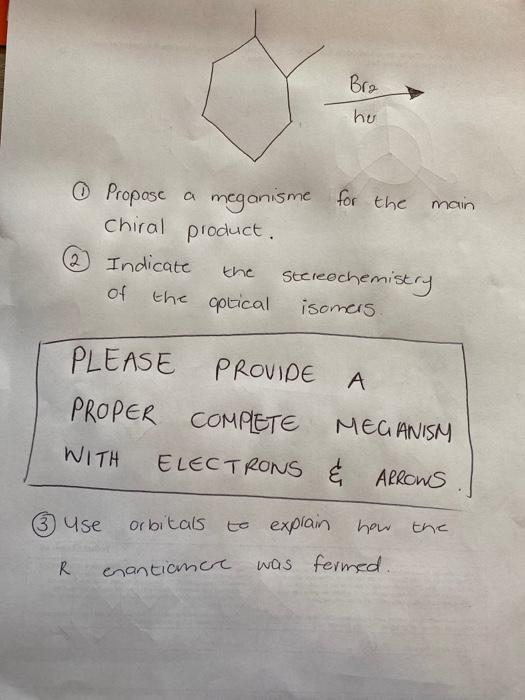 Br2
hν
① Propose a meganisme for the main
chiral product.
② Indicate the stereochemistry
of the optical isomers.
PLEASE PROVIDE A
PROPER COMPLETE MEGANISM
WITH ELECTRONS & ARROWS.
③ Use orbitals to explain how the
R enantiomere was formed.